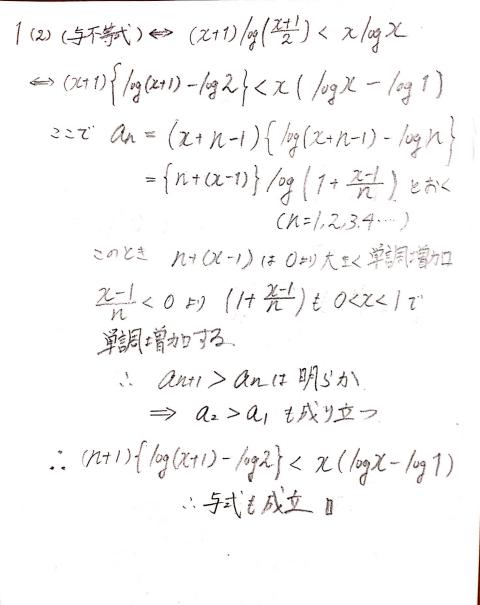 1 (2) (与不等式) ⇔ (x+1)log(x+1/2) < xlogx
⇔ (x+1){log(x+1)-log2} < x(logx-log1)
ここで an = (x+n-1){log(x+n-1)-logn}
= {n+(x-1)}log(1+x-1/n) とおく
(n=1,2,3,4…)
このとき n+(x-1) は 0より大きく単調増加
x-1/n < 0 より (1+x-1/n) も 0<x<1で
単調増加する
∴ an+1 > an は 明らか
⇒ a2 > a1 も成り立つ
∴ (n+1){log(x+1)-log2} < x(logx-log1)
∴ 与式も成立